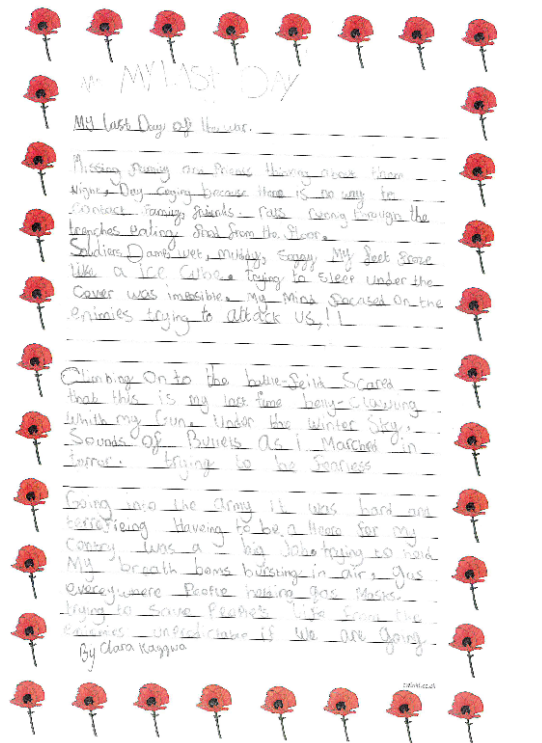 My Last Day
My last Day of the war.
Missing Family and Friends thinking about them
Night, Day crying because there is no way to
contact Family friends. rats runing through the
trenches eating food from the floor.
Soldiers Damp wet, muddy, soggy My feet froze
like a ice cube. trying to sleep under the
cover was imposible. My mind focused on the
enimies trying to attack us,!!
Climbing On to the battle-feild Scared
that this is my last time belly-Clawing
Whith my Gun, Under the Winter Sky.
Sounds of Bullets As I Marched in
terror. trying to be fearless
Going into the army it was hard and
terrefieing Haveing to be a Heoro for my
Contry was a big Job trying to hold
My breath boms bursting in air, gas
everey where People holding gas Masks.
trying to save People's Life from the
enimies unpredictable if we are going
By Clara Kaggwa